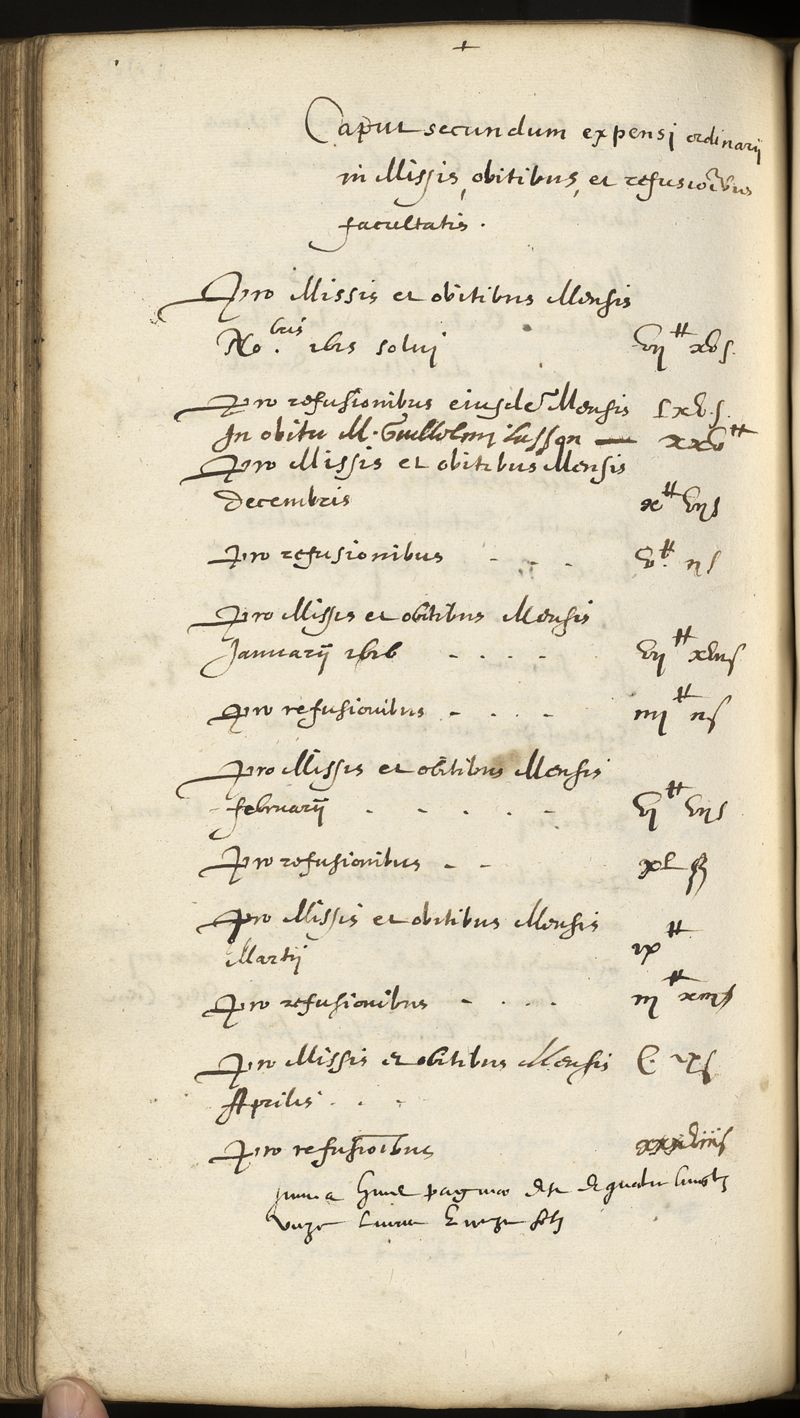 +
Caput secundum expensi ordinarij
in Missis, obitibus, et refusioībus
facultatis.
Pro Missis et obitibus Mensis
No.bris solui vij ₶ xvs.
Pro refusionibus eiusdē Mensis lxv.s.
In obitu M. Guillelmi Lasson — xxv ₶
Pro Missis et obitibus Mensis
decembris x ₶ vijs
Pro refusionibus - - - v ₶ ijs
Pro Missis et obitibus Mensis
Januarij - - - - vij ₶ xvijs
Pro refusionibus - - - iiij ₶ ijs
Pro Missis et obitibus Mensis
februarij - - - - - vj ₶ vijs
Pro refusionibus - - xl ß
Pro Missis et obitibus Mensis
Martij ix ₶
Pro refusionibus - - - - iij ₶ xiijs
Pro Missis et obitibus Mensis
Aprilis - - -
Pro refusioībus